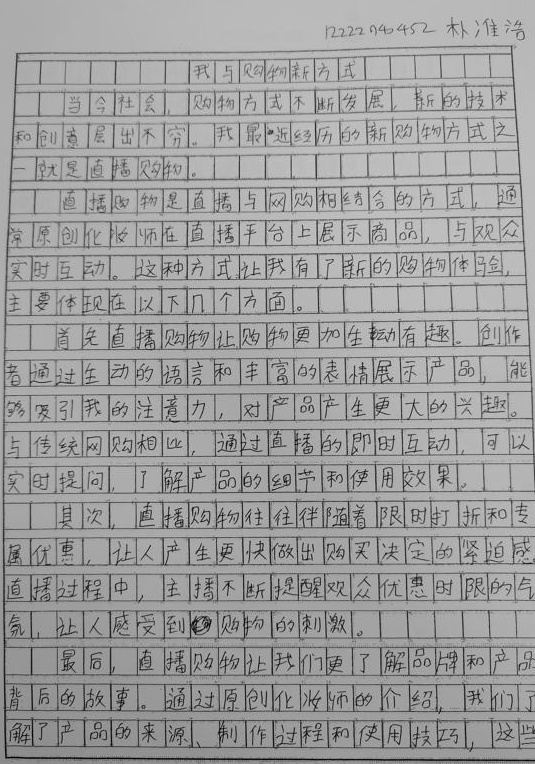 12222040452 朴准浩
我与购物新方式
当今社会，购物方式不断发展，新的技术
和创意层出不穷。我最近经历的新购物方式之
一就是直播购物。
直播购物是直播与网购相结合的方式，通
常原创化妆师在直播平台上展示商品，与观众
实时互动。这种方式让我有了新的购物体验，
主要体现在以下几个方面。
首先直播购物让购物更加生动有趣。创作
者通过生动的语言和丰富的表情展示产品，能
够吸引我的注意力，对产品产生更大的兴趣。
与传统网购相比，通过直播的即时互动，可以
实时提问，了解产品的细节和使用效果。
其次，直播购物往往伴随着限时打折和专
属优惠，让人产生更快做出购买决定的紧迫感
直播过程中，主播不断提醒观众优惠时限的气
氛，让人感受到购物的刺激。
最后，直播购物让我们更了解品牌和产品
背后的故事。通过原创化妆师的介绍，我们了
解了产品的来源、制作过程和使用技巧，这些